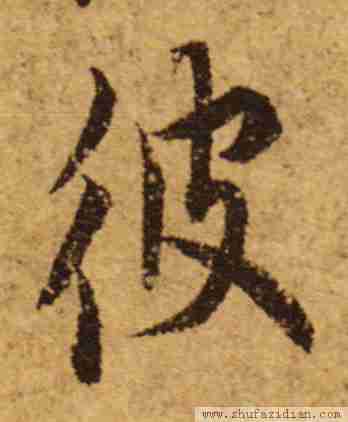 彼
www.shufazidian.com